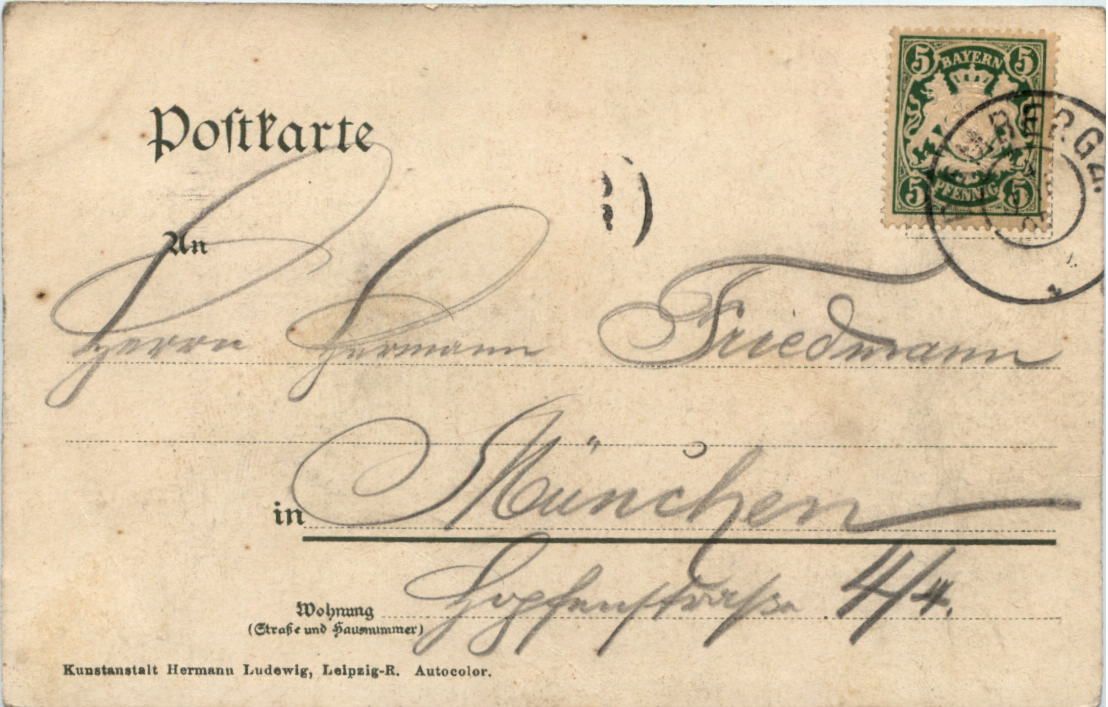 Postkarte
5 BAYERN 5
5 PFENNIG 5
An
Herrn Hermann Friedmann
in München
Wohnung
(Straße und Hausnummer)
Hopfenstraße 4/4.
Kunstanstalt Hermann Ludewig, Leipzig-R. Autocolor.